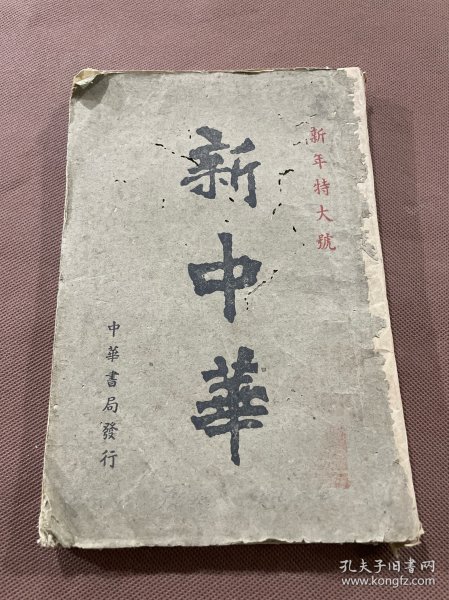 新年特大號
新中華
中華書局發行
孔夫子旧书网
www.kongfz.com